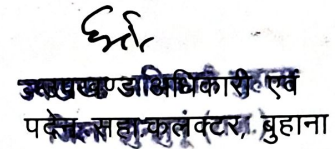 उपखण्ड अधिकारी एवं
पदेन सहा. कलेक्टर, बुहाना